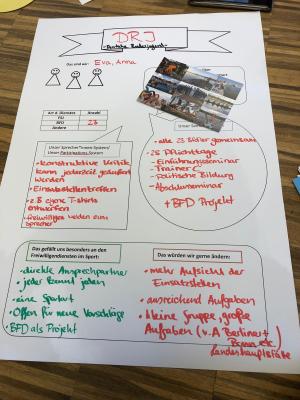 DRJ
- Deutsche Ruderjugend -
Das sind wir: Eva, Anna
Art d. Dienstes Anzahl
FSJ
BFD 23
Andere
Unser Sprecher*innen-System/
Unser Partizipations-System:
• konstruktive Kritik
kann jederzeit geäußert
werden
• Einsatzstellentreffen
• z.B. eigene T-Shirts
entwerfen
• freiwilliges melden zum
Sprecher
Unser
• alle 23 BFDler gemeinsam
• 25 Pflichttage
- Einführungsseminar
- Trainer C
- Politische Bildung
- Abschlussseminar
+ BFD Projekt
Das gefällt uns besonders an den
Freiwilligendiensten im Sport:
• direkte Ansprechpartner
• jeder kennt jeden
• eine Sportart
• Offen für neue Vorschläge
• BFD als Projekt
Das würden wir gerne ändern:
• mehr Aufsicht der
Einsatzstellen
• ausreichend Aufgaben
• kleine Gruppe, große
Aufgaben (v.A. Berliner +
Bonn etc.)
Landeshauptstädte